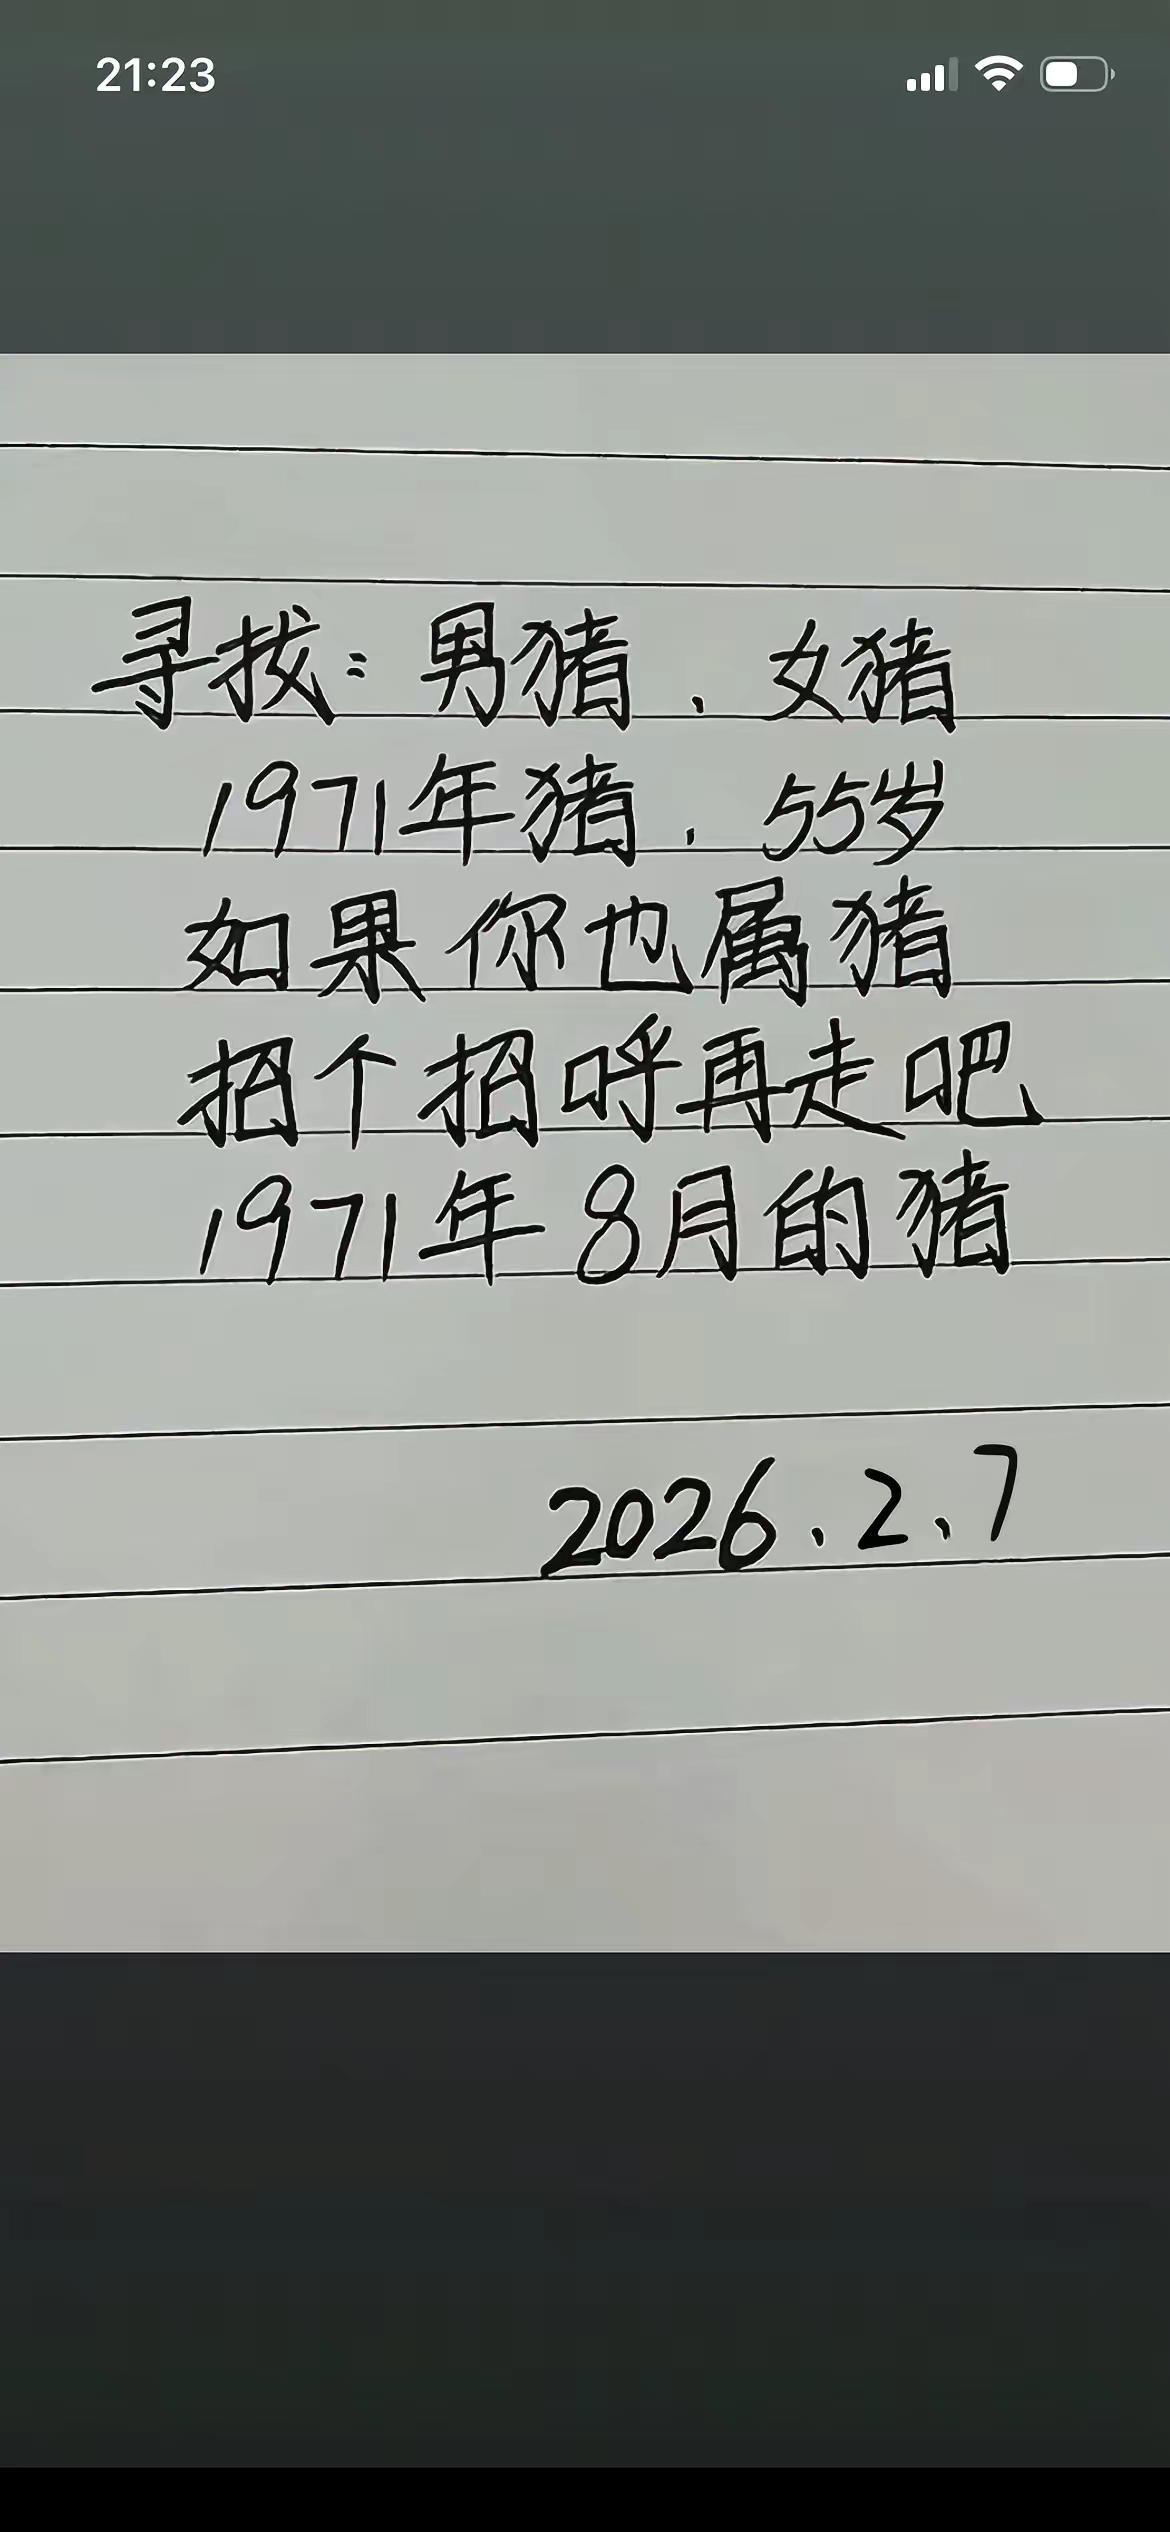 21:23
寻找：男猪、女猪
1971年猪、55岁
如果你也属猪
招个招呼再走吧
1971年8月的猪
2026.2.7